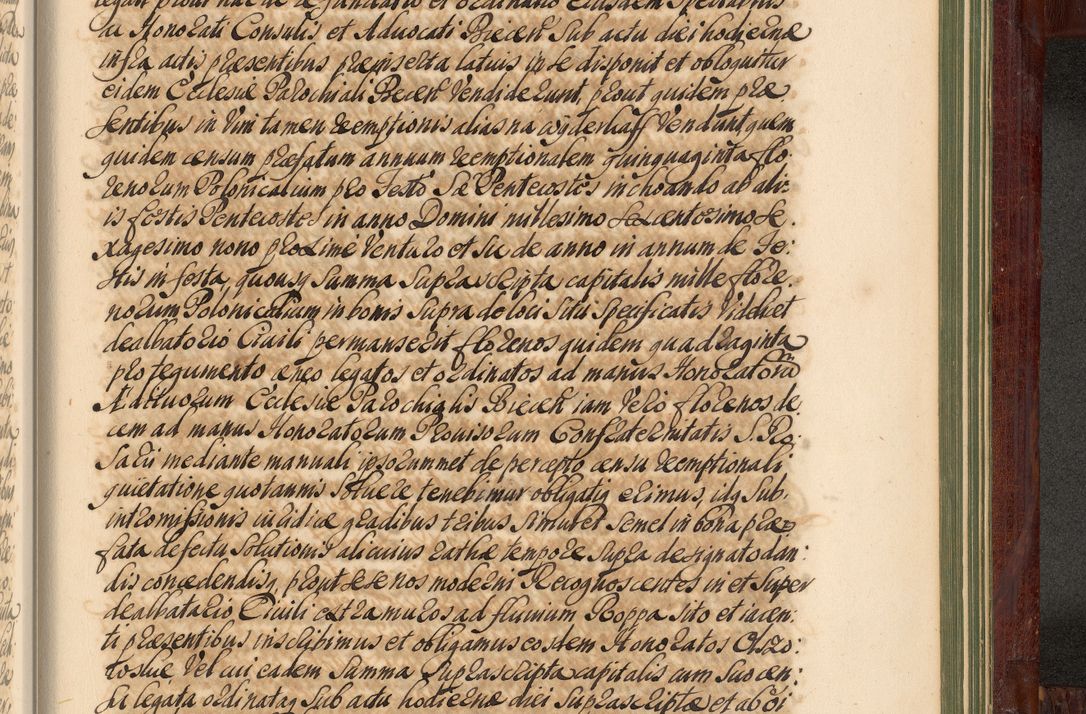 legari prout hac ac de functario et ordinatio Eiusdem Spectabilis
ac Honorati Consulis et Advocati Biecen Sub actu diei hodierne
infra actis præsentibus præinserta latius in se disponit et obloquitur
eidem Ecclesiæ Parochiali Biecen Vendiderunt, prout quidem præ
sentibus in Vim tamen reemptionis alias na wyderkaff Vendunt, quem
quidem censum præfatum annuum reemptionalem quinquaginta flo:
renorum Polonicalium pro Festo Sæ Pentecostes inchoando ab ali:
is festis Pentecostes in anno Domini millesimo Sexcentesimo Se
xagesimo nono proxime Venturo et sic de anno in annum de Fe:
stis in festa, quousq Summa Suprascripta capitalis mille flore:
norum Polonicalium in bonis Supra de loci Situ Specificatis Videlicet
dealbatorio Civili permanserit florenos quidem quadraginta
pro tegumento æreo legatos et ordinatos ad manus Honoratorũ
Aditvorum Ecclesiæ Parochialis Biecen iam Vero florenos de:
cem ad manus Honoratorum Provisorum Confraternitatis S. Ro:
sarii mediante manuali ipsorummet de percepto censu reemptionali
quietatione quotannis Soluere tenebimur obligatiq erimus, idq Sub
intromissionis iuridicæ gradibus tribus Simul et Semel in bona præ
fata defectu Solutionis alicuius rathæ tempore Supra designato dan:
dis concedendisq prout Sese nos moderni Recognoscentes in et Super
dealbatorio Civili extra muros ad fluvium Roppa Sito et iacen:
ti præsentibus inscribimus et obligamus eosdem Honoratos Olszo:
toslie Vel cui eadem Summa Suprascripta capitalis cum Suo cen:
su legata ordinataq Sub actu hodiernæ diei Suprascriptæ et ab ei